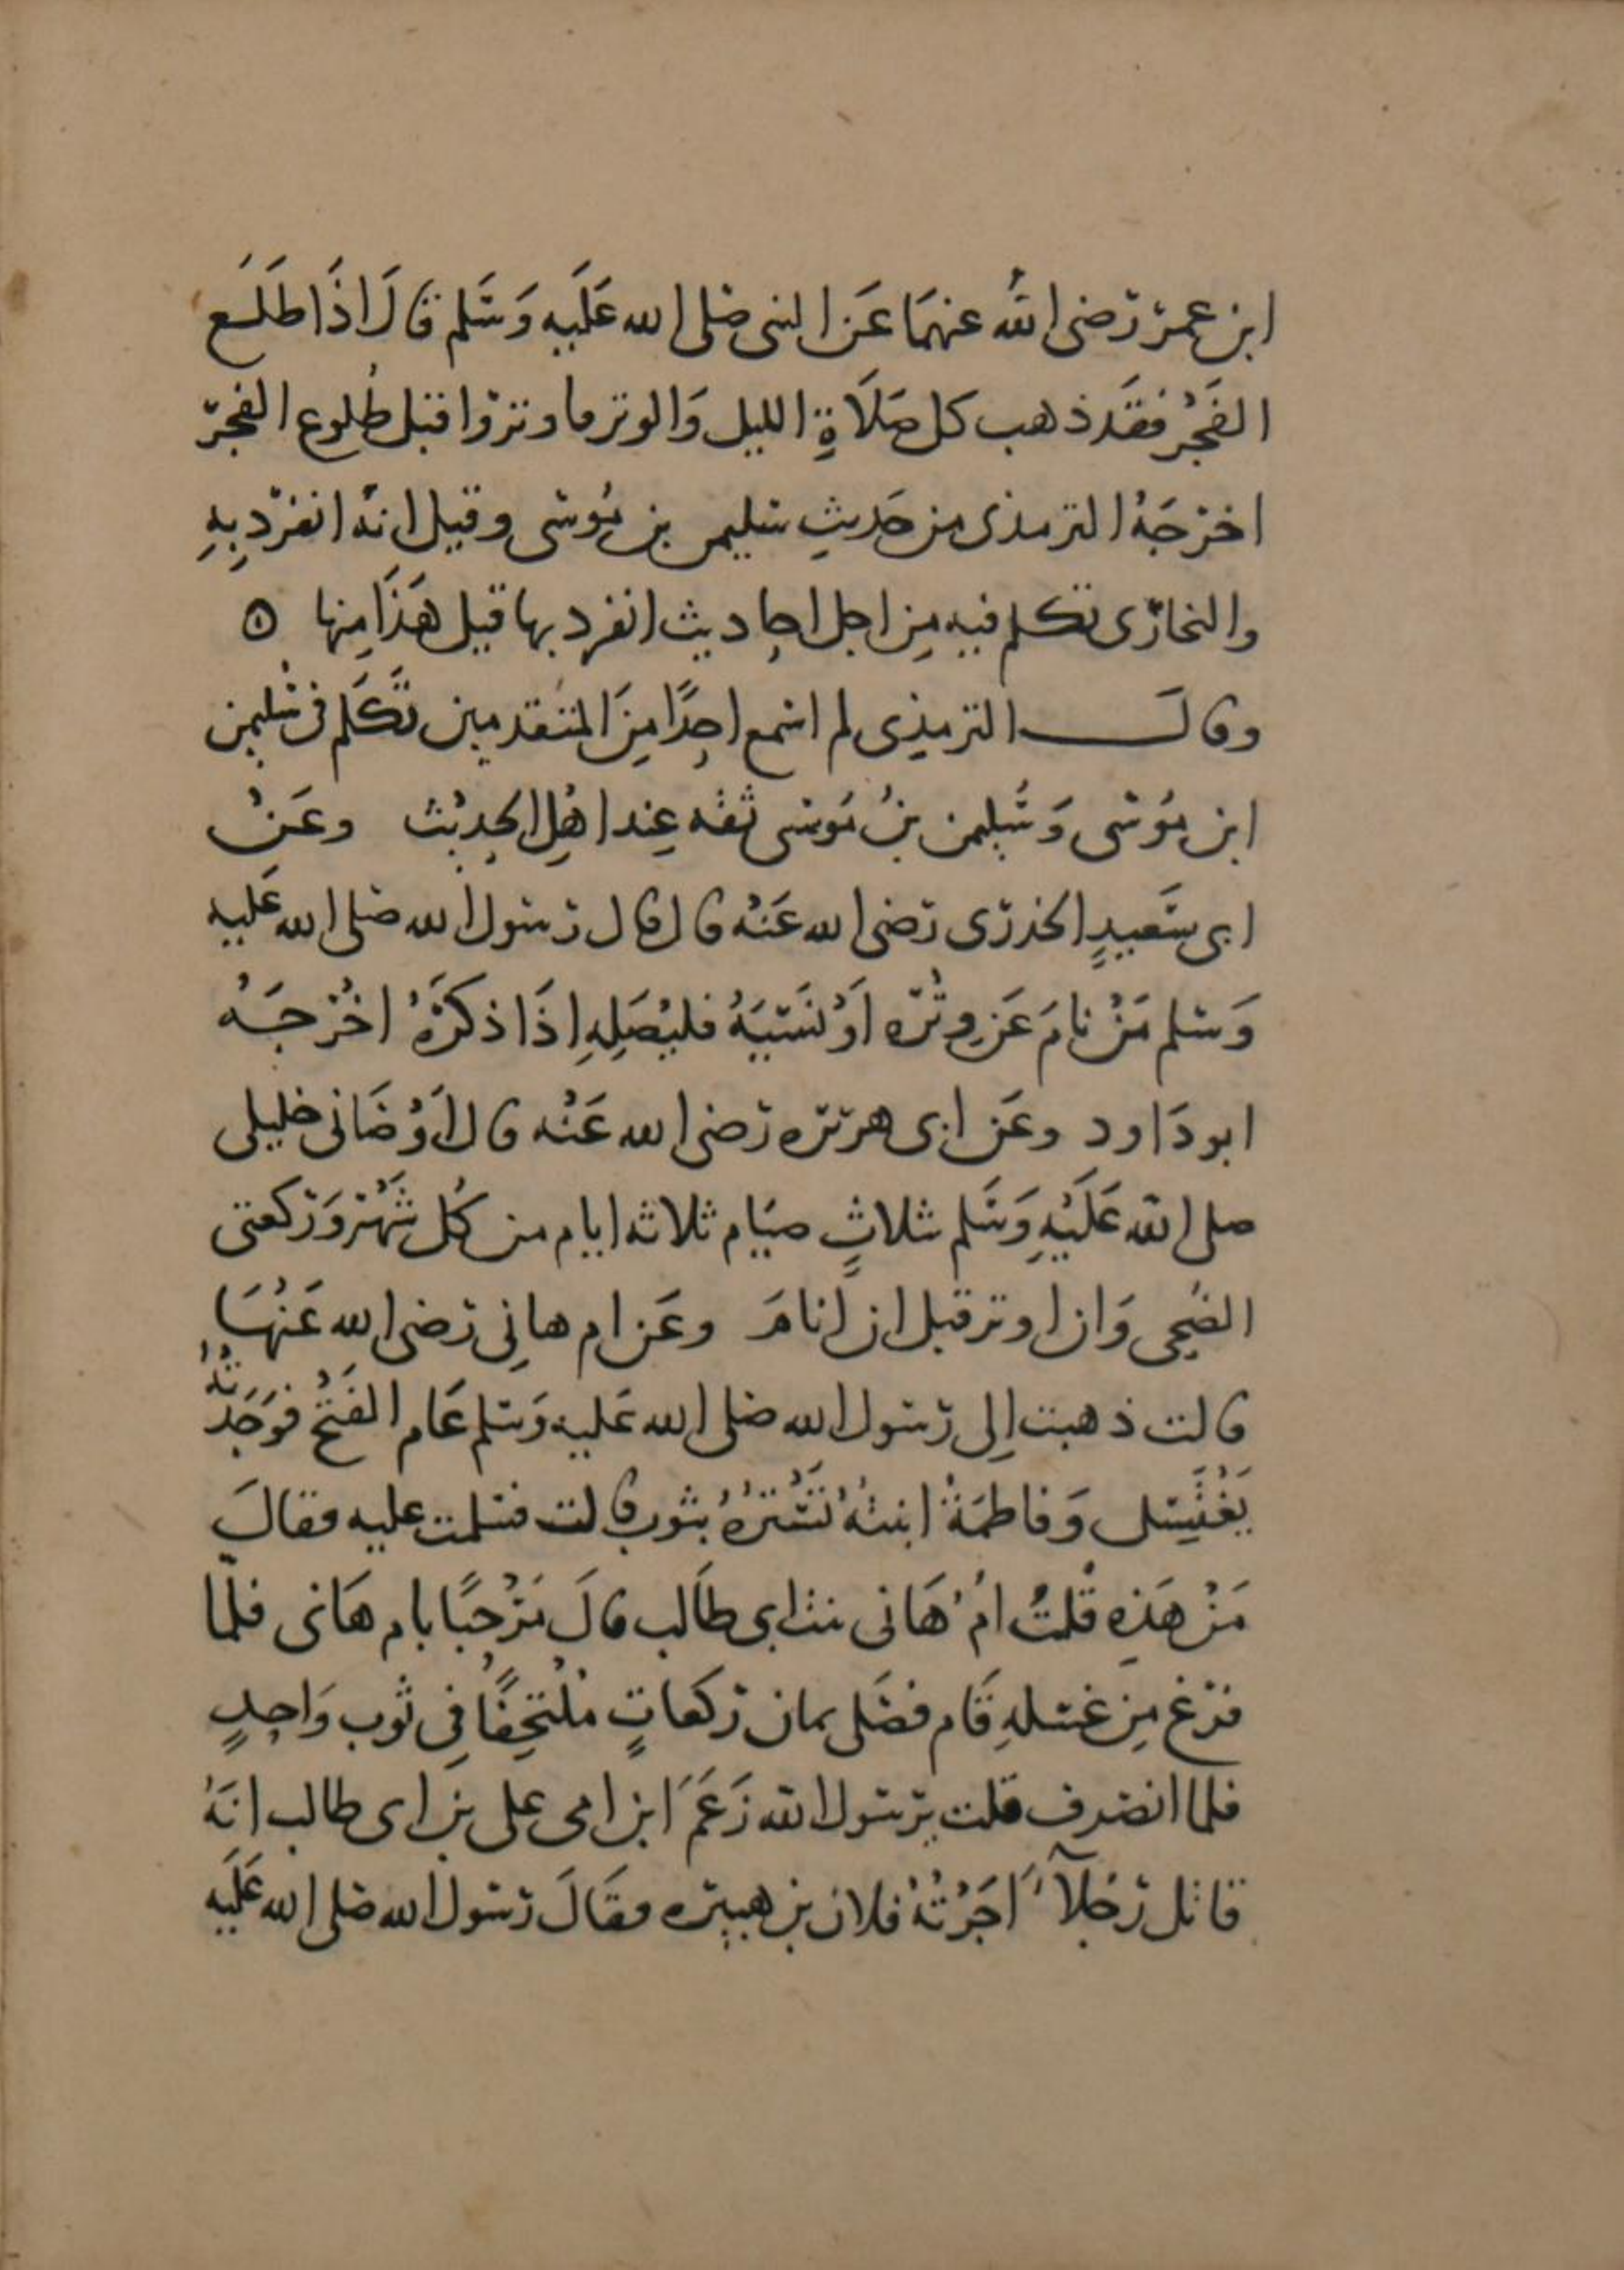 ابن عمر رضى الله عنهمَا عَن النبى صلى الله عَلَيه وَسَلم قالَ اذَا طَلَعَ
الفَجْر فقَد ذهب كل صَلَاةِ الليل وَالوتر فاوتروا قبل طُلوع الفجر
اخرجَهُ الترمذى من حَديثِ سليمن بن مُوسَى وقيل انهُ انفرد بِهِ
والبخارى تكلم فيه مِن اجل احاديث انفرد بها قيل هَذَا مِنها ه
وقالَ الترمذِى لم اسمع احدًا مِنَ المتَقدمين تَكَلم فى سُليمن
ابن مُوسَى وَسُليمن بنُ مُوسى ثقه عِند اهْلِ الحدِيْث وعَنْ
ابى سَعيدٍ الخدرى رضى الله عَنْهُ قال قال رسول الله صلى الله عَليه
وَسلم مَنْ نامَ عَن وِتْره اَوْ نَسيَهُ فليُصَلِهِ اِذَا ذكرَهُ اخْرجَهُ
ابو دَاود وعَن ابى هريره رضى الله عَنْه قال اَوْصَانى خليلى
صلى الله عَلَيْهِ وَسَلم بثلاثٍ صيَام ثلاثه ايام من كُل شَهْر وَركعتى
الضُحى وَان اوتر قبل ان اَنامَ وعَن ام هانِى رضى الله عَنْهَا
قالت ذهبت اِلى رسول الله صلى الله عَليه وَسلم عَام الفَتْح فوَجَدْتُه
يَغْتَسِل وَفاطمَةُ ابنتُهُ تَسْتُرُهُ بثوبٍ قالت فسلمت عليه فقالَ
مَنْ هَذِه قُلتُ اُمُ هَانى بنت ابى طَالب قالَ مَرْحَبًا بام هَانى فلمّا
فرغ مِن غسلهِ قَام فصَلى ثمان ركعاتٍ مُلْتَحِفًا فِى ثوب وَاحِدٍ
فلما انصرف قلت يرسول الله زَعَمَ ابن امى على بن ابى طالب انَهُ
قاتل رَجُلاً اَجَرْتُهُ فلان بن هبيره فقَالَ رسول الله صلى الله عَلَيه